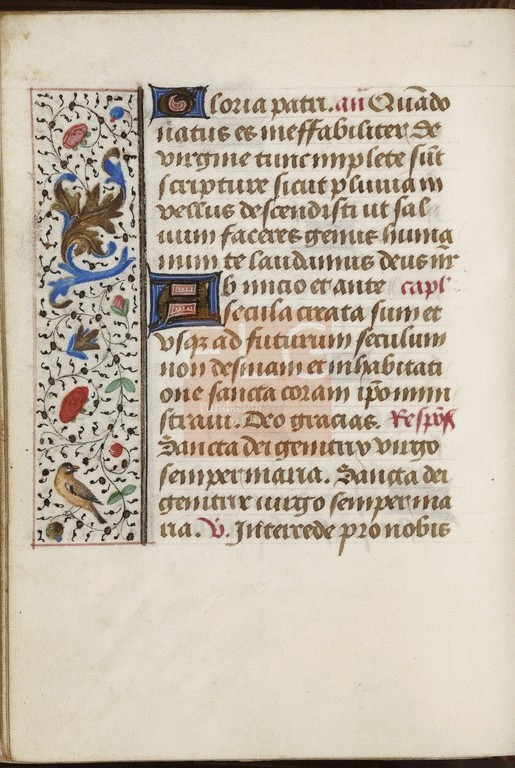 Gloria patri. añ Quãdo
natus es ineffabiliter de
virgine tunc implete sũt
scripture sicut pluuia in
vellus descendisti ut sal
uum faceres genus huma
num te laudamus deus nr̃
Ab inicio et ante capl̃
secula creata sum et
vsqꝫ ad futurum seculum
non desinam et in habitati
one sancta coram ip̃o mini
straui. Deo gracias. Respõs
Sancta dei genitrix virgo
semper maria. Sancta dei
genitrix uirgo semper ma
ria. V. Intercede pro nobis